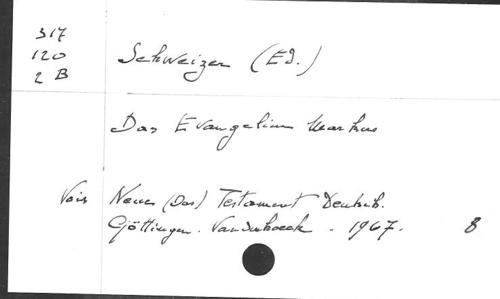 317
120
2 B
Schweizer (Ed.)
Das Evangelium Markus
Voir Neues (Das) Testament Deutsch.
Göttingen. Vandenhoeck. 1967. 8